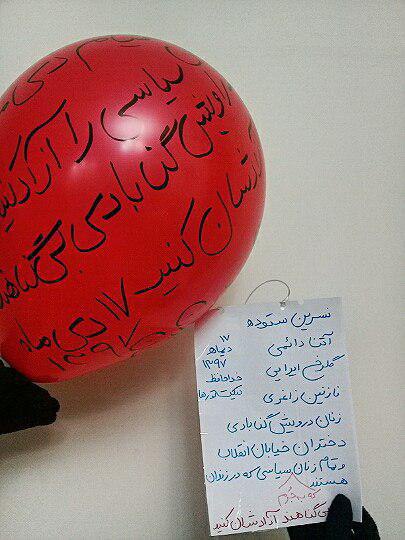 سیاسی را آزاد کنید
دراویش گنابادی بی گناهند
آزادشان کنید ۱۷ دی ماه
۱۳۹۷
نسرین ستوده
آتنا دائمی
گلرخ ایرایی
نازنین زاغری
زنان درویش گنابادی
دختران خیابان انقلاب
و تمام زنان سیاسی که در زندان
هستند
بی گناهند آزادشان کنید
۱۷
دیماه
۱۳۹۷
خداحافظ